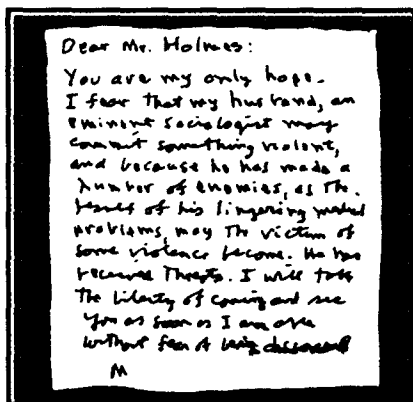 Dear Mr. Holmes:
You are my only hope.
I fear that my husband, an
eminent sociologist may
commit something violent,
and because he has made a
number of enemies, as the
result of his lingering mental
problems, may the victim of
some violence become. He has
received threats. I will take
the liberty of coming and see
you as soon as I am able
without fear of being discovered
M